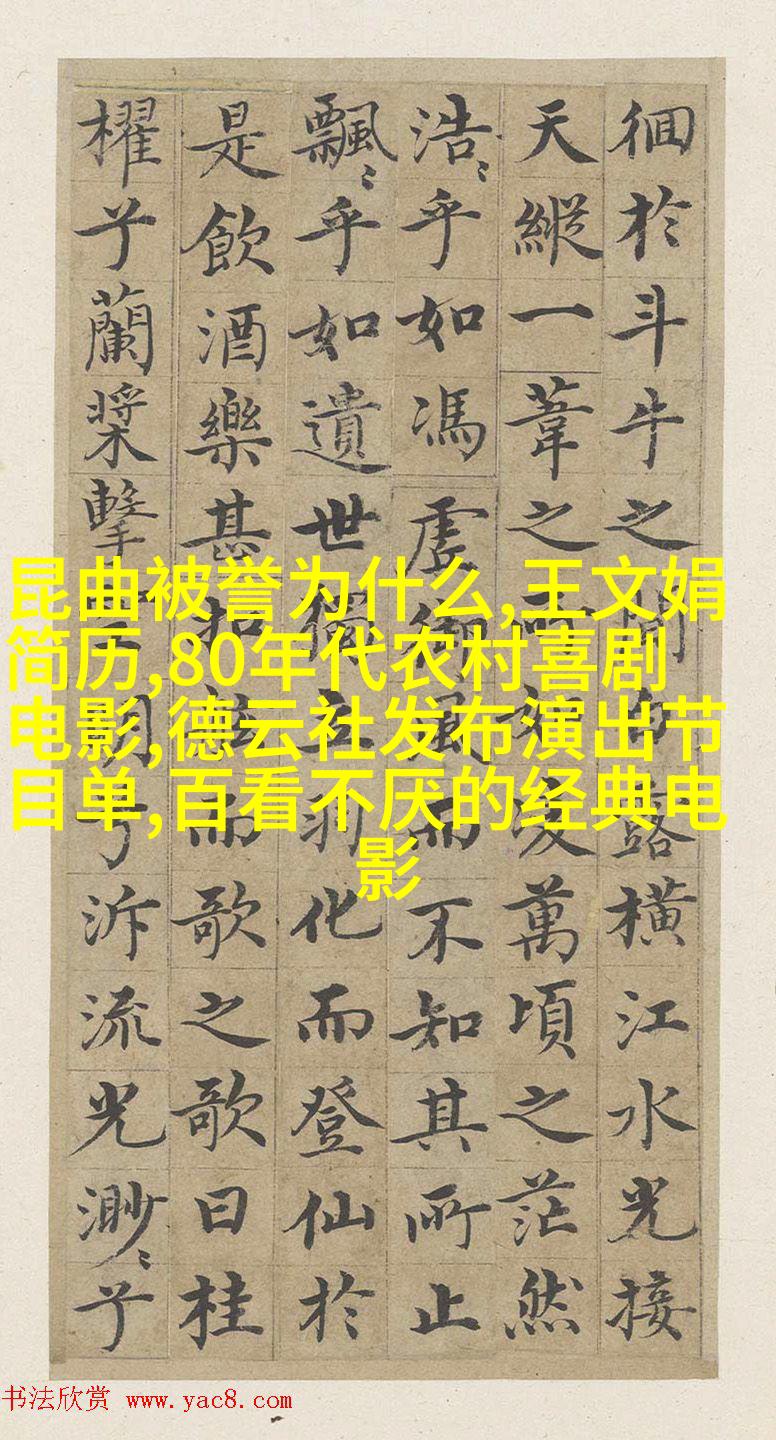 徊於斗牛之間白露橫江水光接
天縱一葦之所如淩萬頃之茫然
浩〻乎如馮虗御風而不知其所止
飄〻乎如遺世獨立羽化而登仙於
是飲酒樂甚扣舷而歌之歌曰桂
櫂兮蘭槳擊空明兮泝流光渺〻兮
昆曲被誉为什么,王文娟
简历,80年代农村喜剧
电影,德云社发布演出节
目单,百看不厌的经典电
影
书法欣赏 www.yac8.com